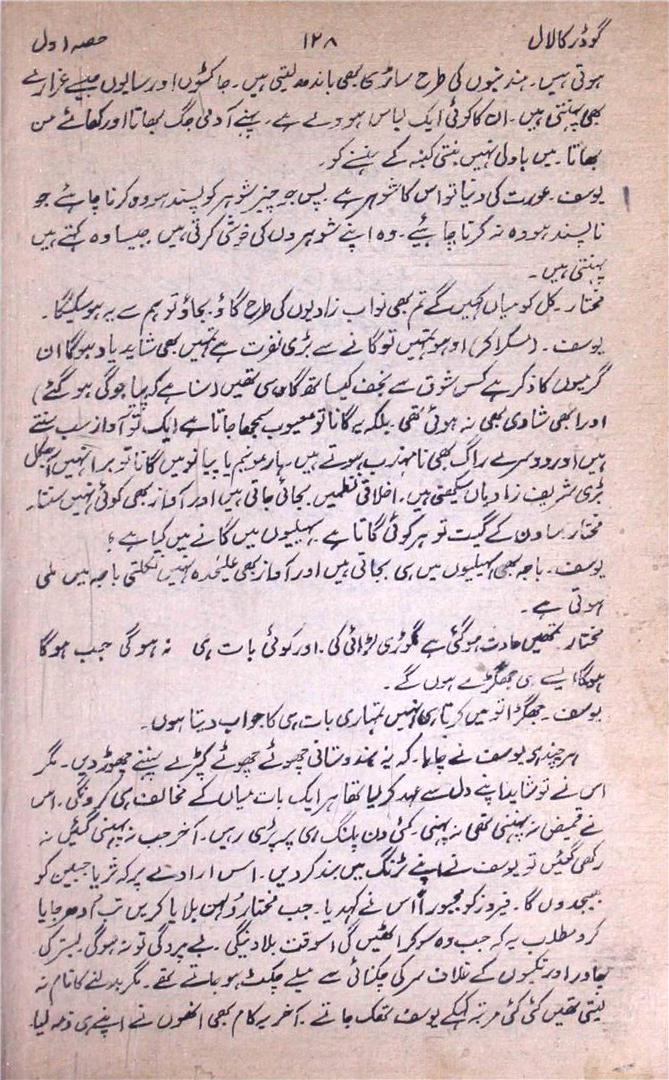 گودڑ کا لال ۱۲۸ حصہ اول
ہوتی ہیں۔ ہندنیوں کی طرح ساڑی بھی باندھ لیتی ہیں۔ جاکٹوں اور سایوں جیسے غرارے
بھی پہنتی ہیں۔ ان کا کوئی ایک لباس ہووے ہے۔ پہنے آدمی جگ بھاتا اور کھائے من
بھاتا۔ میں باولی نہیں بنتی کنبہ کے ہنسنے کو۔
یوسف۔ عورت کی دنیا تو اس کا شوہر ہے۔ پس جو چیز شوہر کو پسند ہو وہ کرنا چاہئے جو
ناپسند ہو وہ نہ کرنا چاہیئے۔ وہ اپنے شوہروں کی خوشی کرتی ہیں۔ جیسا وہ کہتے ہیں
پہنتی ہیں۔
مختار۔ کل کو میاں کہیں گے تم بھی نواب زادیوں کی طرح گاؤ بجاؤ تو ہم سے یہ ہو سکیگا۔
یوسف۔ (مسکرا کر) اوہو تمہیں تو گانے سے بڑی نفرت ہے تمہیں بھی شاید یاد ہوگا ان
گرمیوں کا ذکر ہے کس شوق سے نجف کیساتھ گا رہی تھیں (سنا ہے کہ پیا جوگی ہو گئے)
اور ابھی شادی بھی نہ ہوئی تھی۔ بلکہ یہ گانا تو معیوب سمجھا جاتا ہے ایک تو آواز سب سنتے
ہیں اور دوسرے راگ بھی نامہذب ہوتے ہیں۔ ہارمونیم یا پیانو میں گانا تو برا نہیں آجکل
بڑی شریف زادیاں سیکھتی ہیں۔ اخلاقی نظمیں بجائی جاتی ہیں اور آواز بھی کوئی نہیں سنتا۔
مختار۔ ساون کے گیت تو ہر کوئی گاتا ہے۔ سہیلیوں میں گانے میں کیا ہے؟
یوسف۔ باجہ بھی سہیلیوں میں ہی بجاتی ہیں اور آواز بھی علیٰحدہ نہیں نکلتی باجہ میں ملی
ہوتی ہے۔
مختار۔ تمھیں عادت ہو گئی ہے نگوڑی لڑائی کی۔ اور کوئی بات ہی نہ ہو گی جب ہوگا
ہوگا ایسے ہی جھگڑے ہوں گے۔
یوسف۔ جھگڑا تو میں کرتا ہی نہیں تمہاری بات ہی کا جواب دیتا ہوں۔
ہر چند ہی یوسف نے چاہا۔ کہ یہ ہندوستانی چھوٹے چھوٹے کپڑے پہننے چھوڑ دیں۔ مگر
اس نے تو شاید اپنے دل سے عہد کر لیا تھا ہر ایک بات میاں کے مخالف ہی کرونگی۔ اس
نے قمیض نہ پہنی تھی نہ پہنی۔ کئی دن پلنگ ہی پر پڑی رہیں۔ آخر جب نہ پہنی گئیں نہ
رکھی گئیں تو یوسف نے اپنے ٹرنگ میں بند کر دیں۔ اس ارادے پر کہ ثریا جبین کو
بھیجدوں گا۔ فیروز کو مجبوراً اس نے کہدیا۔ جب مختار دلہن بلایا کریں تب اُدھر جایا
کرو مطلب یہ کہ جب وہ سو کر اٹھیں گی اسوقت بلاوینگی۔ بے پردگی تو نہ ہوگی۔ بستر کی
چادر اور تکیوں کے غلاف سر کی چکنائی سے میلے چکٹ ہو جاتے تھے۔ مگر بدلنے کا نام نہ
لیتی تھیں کئی کئی مرتبہ کہکے یوسف تھک جاتے۔ آخر یہ کام بھی انھوں نے اپنے ہی ذمہ لیا۔